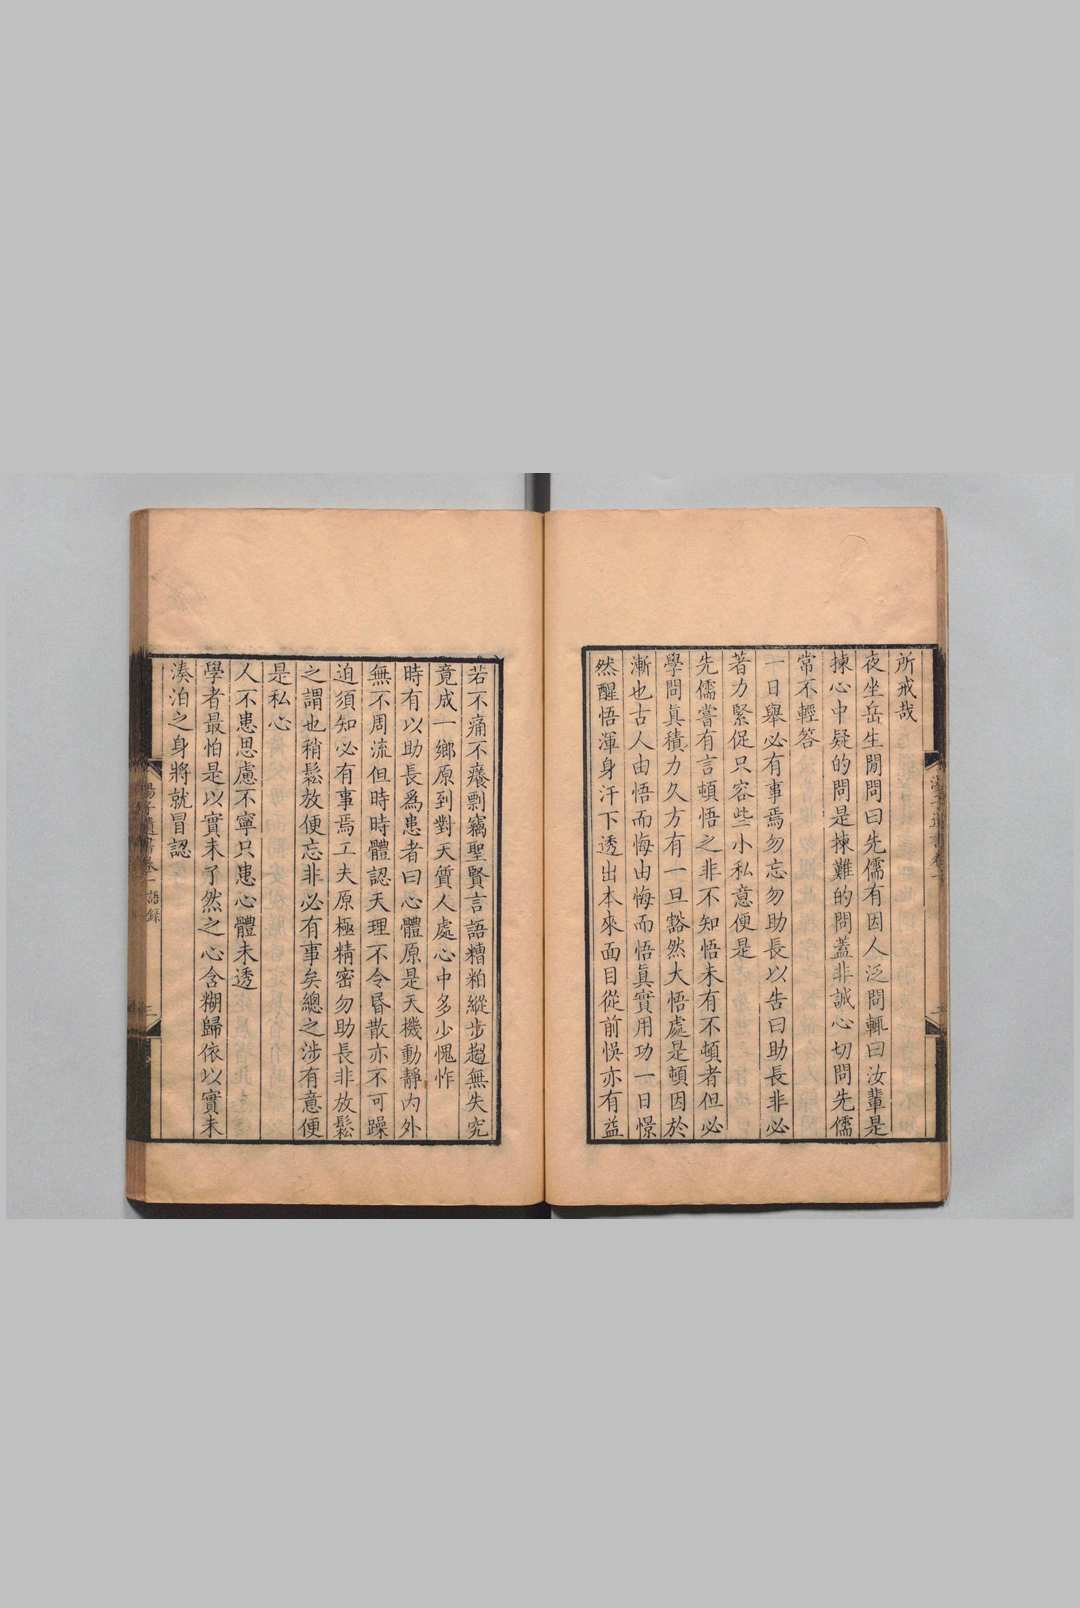 所戒哉
夜坐岳生閒問曰先儒有因人泛問輒曰汝輩是
揀心中疑的問是揀難的問蓋非誠心切問先儒
常不輕答
一日舉必有事焉勿忘勿助長以告曰助長非必
著力緊促只容些小私意便是
先儒嘗有言頓悟之非不知悟未有不頓者但必
學問真積力久方有一旦豁然大悟處是頓因於
漸也古人由悟而悔由悔而悟眞實用功一日憬
然醒悟渾身汗下透出本來面目從前悞亦有益
若不痛不癢剽竊聖賢言語糟粕縱步趨無失究
竟成一鄉原到對天質人處心中多少愧怍
時有以助長爲患者曰心體原是天機動靜內外
無不周流但時時體認天理不令昏散亦不可躁
迫須知必有事焉工夫原極精密勿助長非放鬆
之謂也稍鬆放便忘非必有事矣總之涉有意便
是私心
人不患思慮不寧只患心體未透
學者最怕是以實未了然之心含糊歸依以實未
湊泊之身將就冒認
湯子遺書卷一 語錄 三